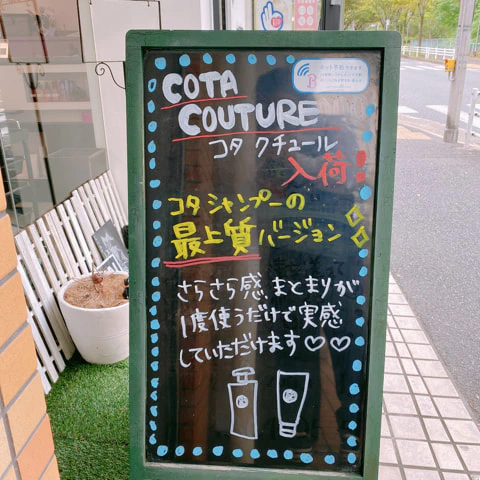 COTA
COUTURE
コタ クチュール
入荷!
コタシャンプーの
最上質バージョン
さらさら感、まとまりが
1度使うだけで実感
していただけます♡♡